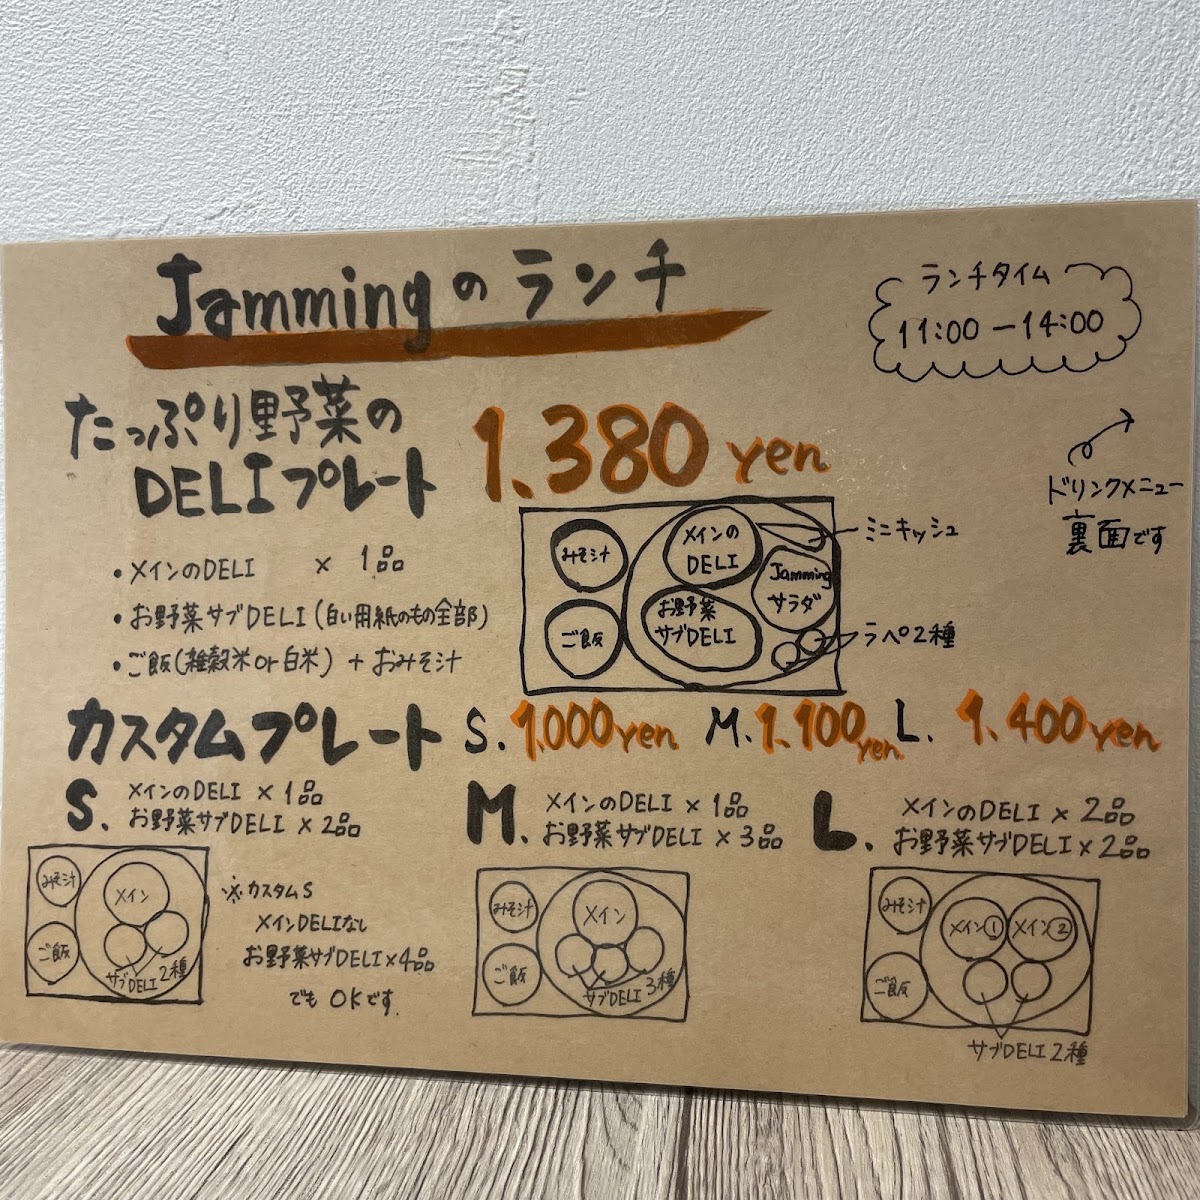 Jammingのランチ
ランチタイム
11:00ー14:00
たっぷり野菜の
DELIプレート
1.380 yen
ドリンクメニュー
裏面です
・メインのDELI × 1品
・お野菜サブDELI(白い用紙のもの全部)
・ご飯(雑穀米or白米)+おみそ汁
みそ汁
ご飯
メインの
DELI
お野菜
サブDELI
Jamming
サラダ
ミニキッシュ
ラペ2種
カスタムプレート S. 1.000yen M. 1.100yen L. 1.400yen
S. メインのDELI × 1品
お野菜サブDELI × 2品
みそ汁
ご飯
メイン
サブDELI 2種
※カスタムS
メインDELIなし
お野菜サブDELI×4品
でもOKです.
M. メインのDELI × 1品
お野菜サブDELI × 3品
みそ汁
ご飯
メイン
サブDELI 3種
L. メインのDELI × 2品
お野菜サブDELI × 2品
みそ汁
ご飯
メイン①
メイン②
サブDELI 2種